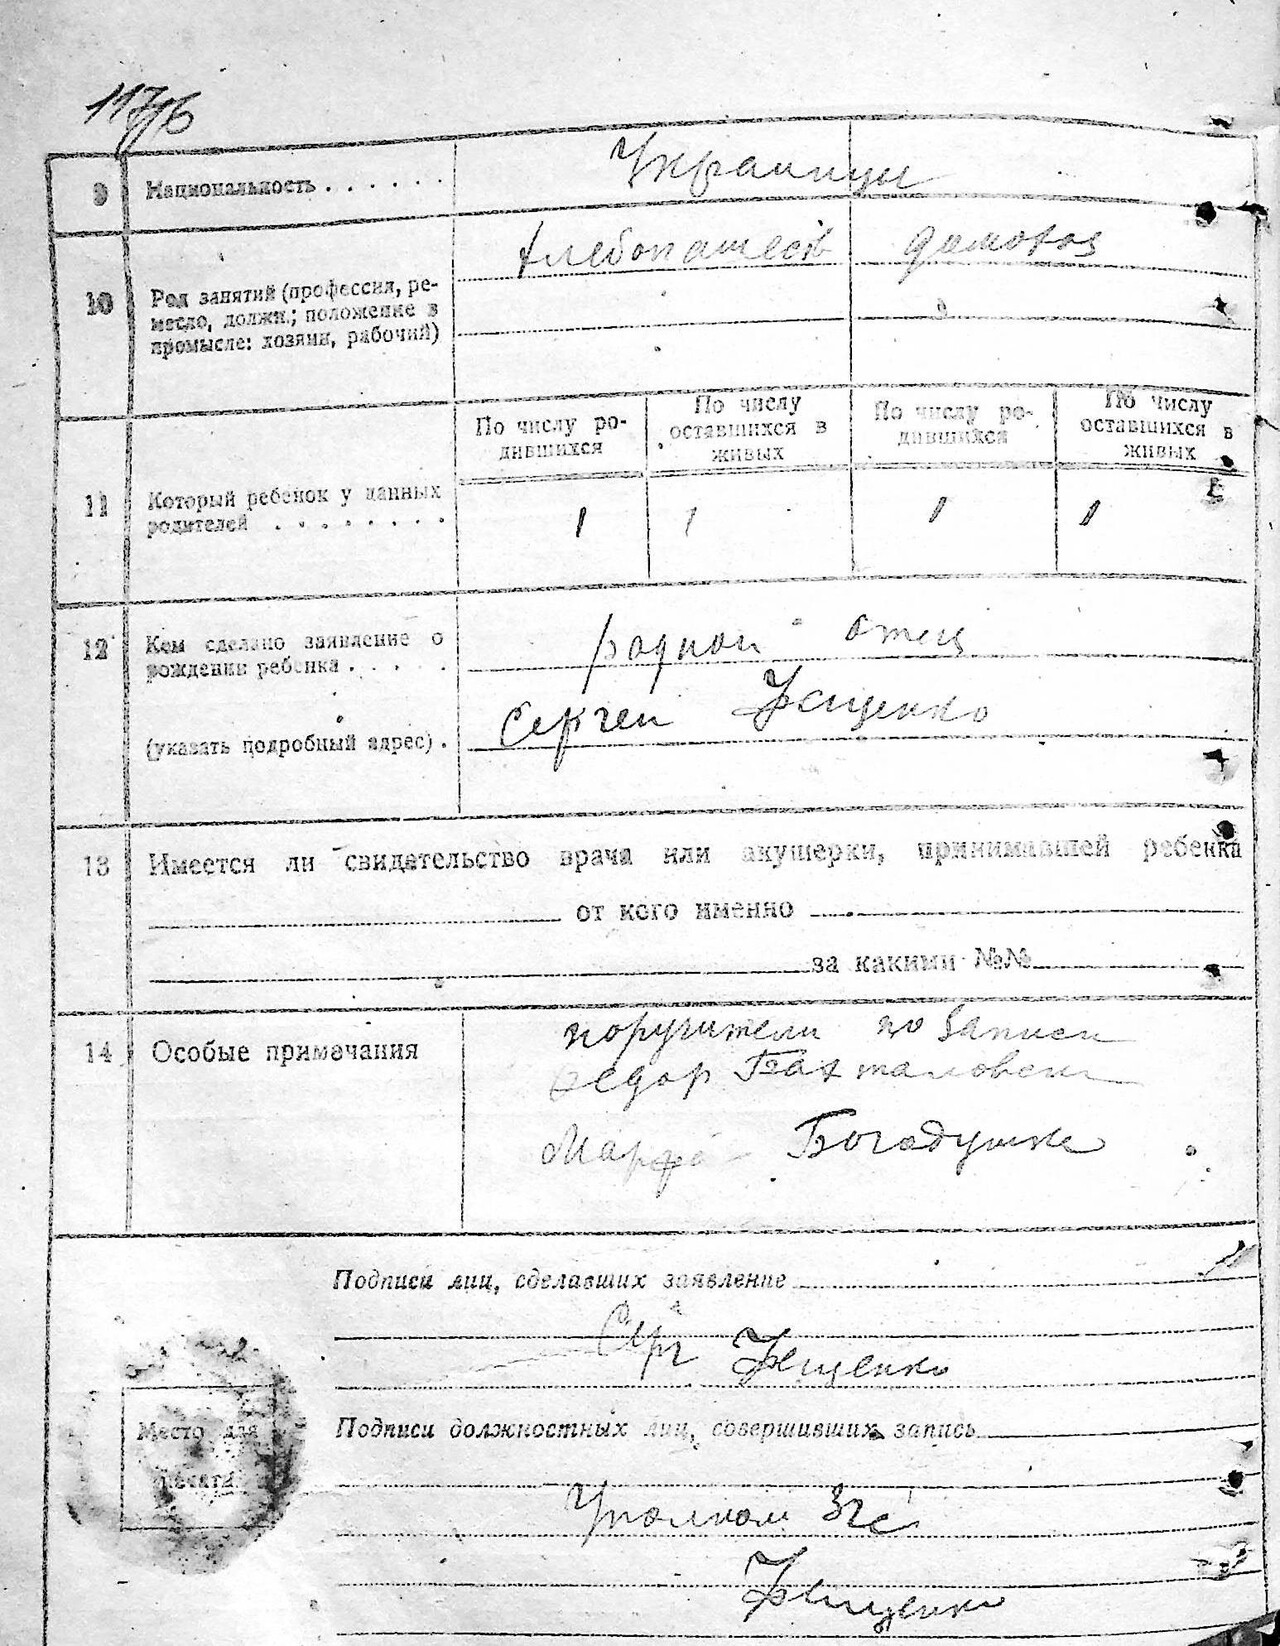 9 Национальность . . . . . . Украинцы
10 Род занятий (профессия, ре-
месло, должн.; положение в
промысле: хозяин, рабочий)
хлебопашест домохоз
По числу ро-
дившихся
По числу
оставшихся в
живых
По числу ро-
дившихся
По числу
оставшихся в
живых
11 Который ребенок у данных
родителей . . . . . . . .
1 1 1 1
12 Кем сделано заявление о
рождении ребенка . . . . .
(указать подробный адрес) .
родной отец
Сергей
13 Имеется ли свидетельство врача или акушерки, принимавшей ребенка
от кого именно
за какими №№
14 Особые примечания
поручители по записи
Федор
Марфа
Подписи лиц, сделавших заявление
Серг
Место для
печати
Подписи должностных лиц, совершивших запись